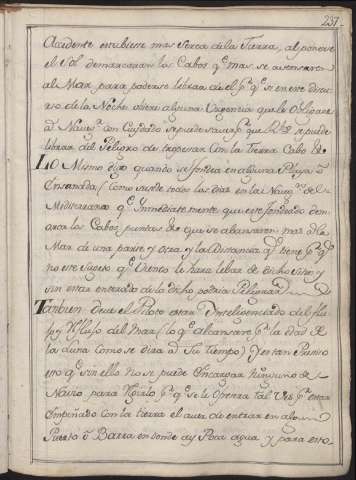 237.
Accidente estubiere mas serca dela Tierra, al ponerse
el Sol demarcaran los Cabos q.e mas se abansaren
al Mar, para poderse librar de el p.r q.e si en este discur
so dela Noche ubiere alguna Urgencia que le Obligare
à Naveg.r con Cuydado se puede
librar del Peligro de tropesar con la Tierra Cabo &.
LO Mismo digo quando se fondea en alguna Playa, ò
Ensenada (Como susede todos los dias en la Naveg.on del
Mediterraneo q.e Immediatemente que este fondeado dem
arca los Cabos, puntas &. que se abansaren mas ala
Mar de una parte y otra, y la Distancia q.e tiene p.r q.e
no este sugeto q.e Viento le hara lebar de dicho sitio y
sin estar enterado de lo dicho podria Peligrar
Tambien deve el Piloto estar Inteligenciado del flu
jo y Reflujo del Mar (lo q.e alcansara p.r la edad de
la Luna como se dira a Su tiempo) y es tan Presiso
esto q.e sin ello no se puede Encargar ninguno de
Navio para Regirlo p.r q.e se le ofresera tal Vez p.r estar
Empeñado con la tierra el aver de entrar en algun
Puerto ò Barra en donde ay Poca agua y para esto